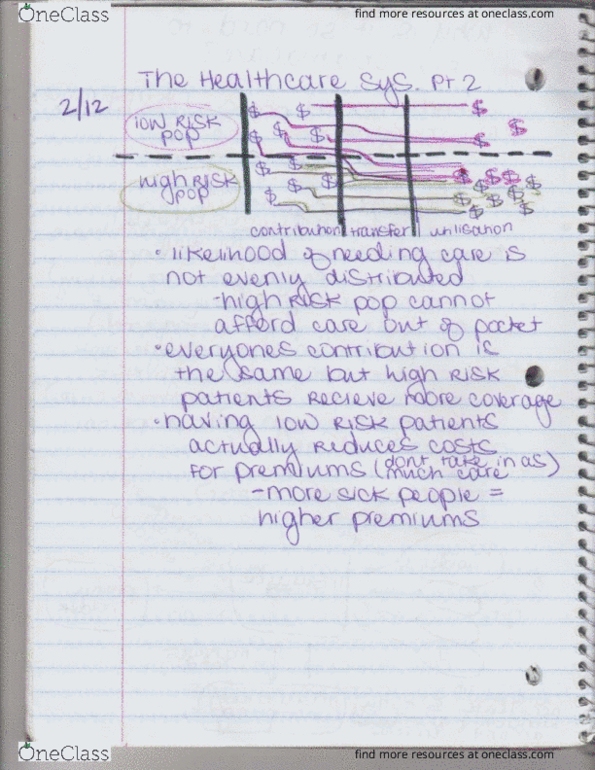 OneClass
find more resources at oneclass.com
The Healthcare Sys. Pt 2
2/12
low RISK
pop
$ $ $ $ $ $ $ $ $
high RISK
pop
$ $ $ $ $ $ $ $ $ $ $ $ $ $
contribution transfer utilisation
• likelihood of needing care is
not evenly distributed
-high RISK pop cannot
afford care out of pocket
• everyones contribution is
the same but high RISK
patients recieve more coverage
• having low RISK patients
actually reduces costs
for premiums (dont take in as
much care)
-more sick people =
higher premiums
OneClass
find more resources at oneclass.com